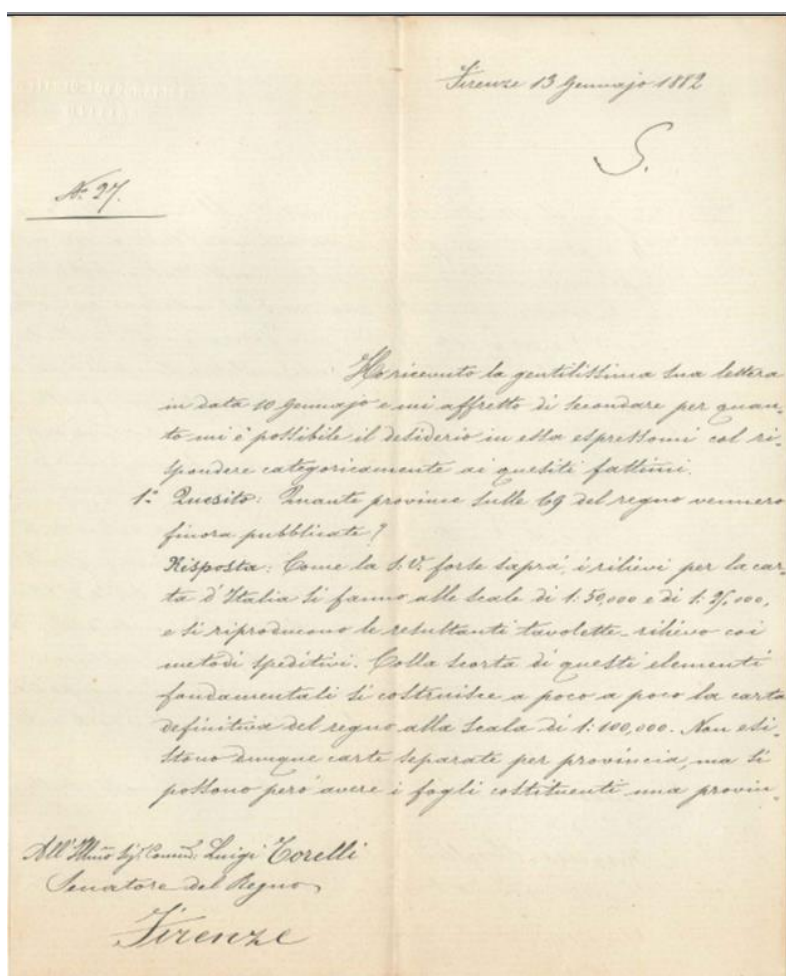 Firenze 13 Gennajo 1882
S.
N.° 27.
Ho ricevuto la gentilissima sua lettera
in data 10 Gennajo e mi affretto di secondare per quan-
to mi è possibile il desiderio in essa espressomi col ri-
spondere categoricamente ai quesiti fattimi.
1.° Quesito: Quante provincie sulle 69 del regno vennero
finora pubblicate?
Risposta: Come la S. V. forse saprà, i rilievi per la car-
ta d'Italia si fanno alle scale di 1:50,000 e di 1:25,000,
e si riproducono le resultanti tavolette-rilievo coi
metodi speditivi. Colla scorta di questi elementi
fondamentali si costruisce a poco a poco la carta
definitiva del regno alla scala di 1:100,000. Non esi-
stono dunque carte separate per provincia, ma si
possono però avere i fogli costituenti una provin-
All' Illmo Sigr. Comm. Luigi Torelli
Senatore del Regno
Firenze